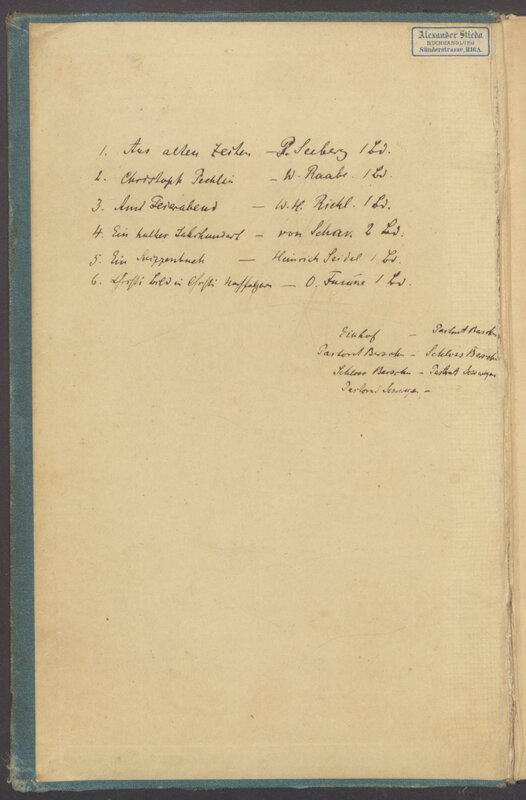 Alexander Stieda
BUCHHANDLUNG
Sünderstrasse, RIGA.
1. Aus alten Zeiten – P. Seeberg 1 Bd.
2. Christoph Pechlin – W. Raabe. 1 Bd.
3. Am Feierabend – W. H. Riehl. 1 Bd.
4. Ein halbes Jahrhundert – von Schack. 2 Bd.
5. Ein Skizzenbuch – Heinrich Seidel 1 Bd.
6. Christi Bild in Christi Nachfolgern – O. Funcke 1 Bd.
– Pastorat Berson
Pastorat Berson – Schloss Berson
Schloss Berson – Pastorat Sesswegen
Pastorat Sesswegen –